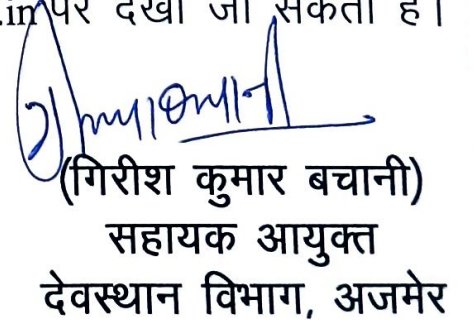 .in पर देखा जा सकता है।
(गिरीश कुमार बचानी)
सहायक आयुक्त
देवस्थान विभाग, अजमेर